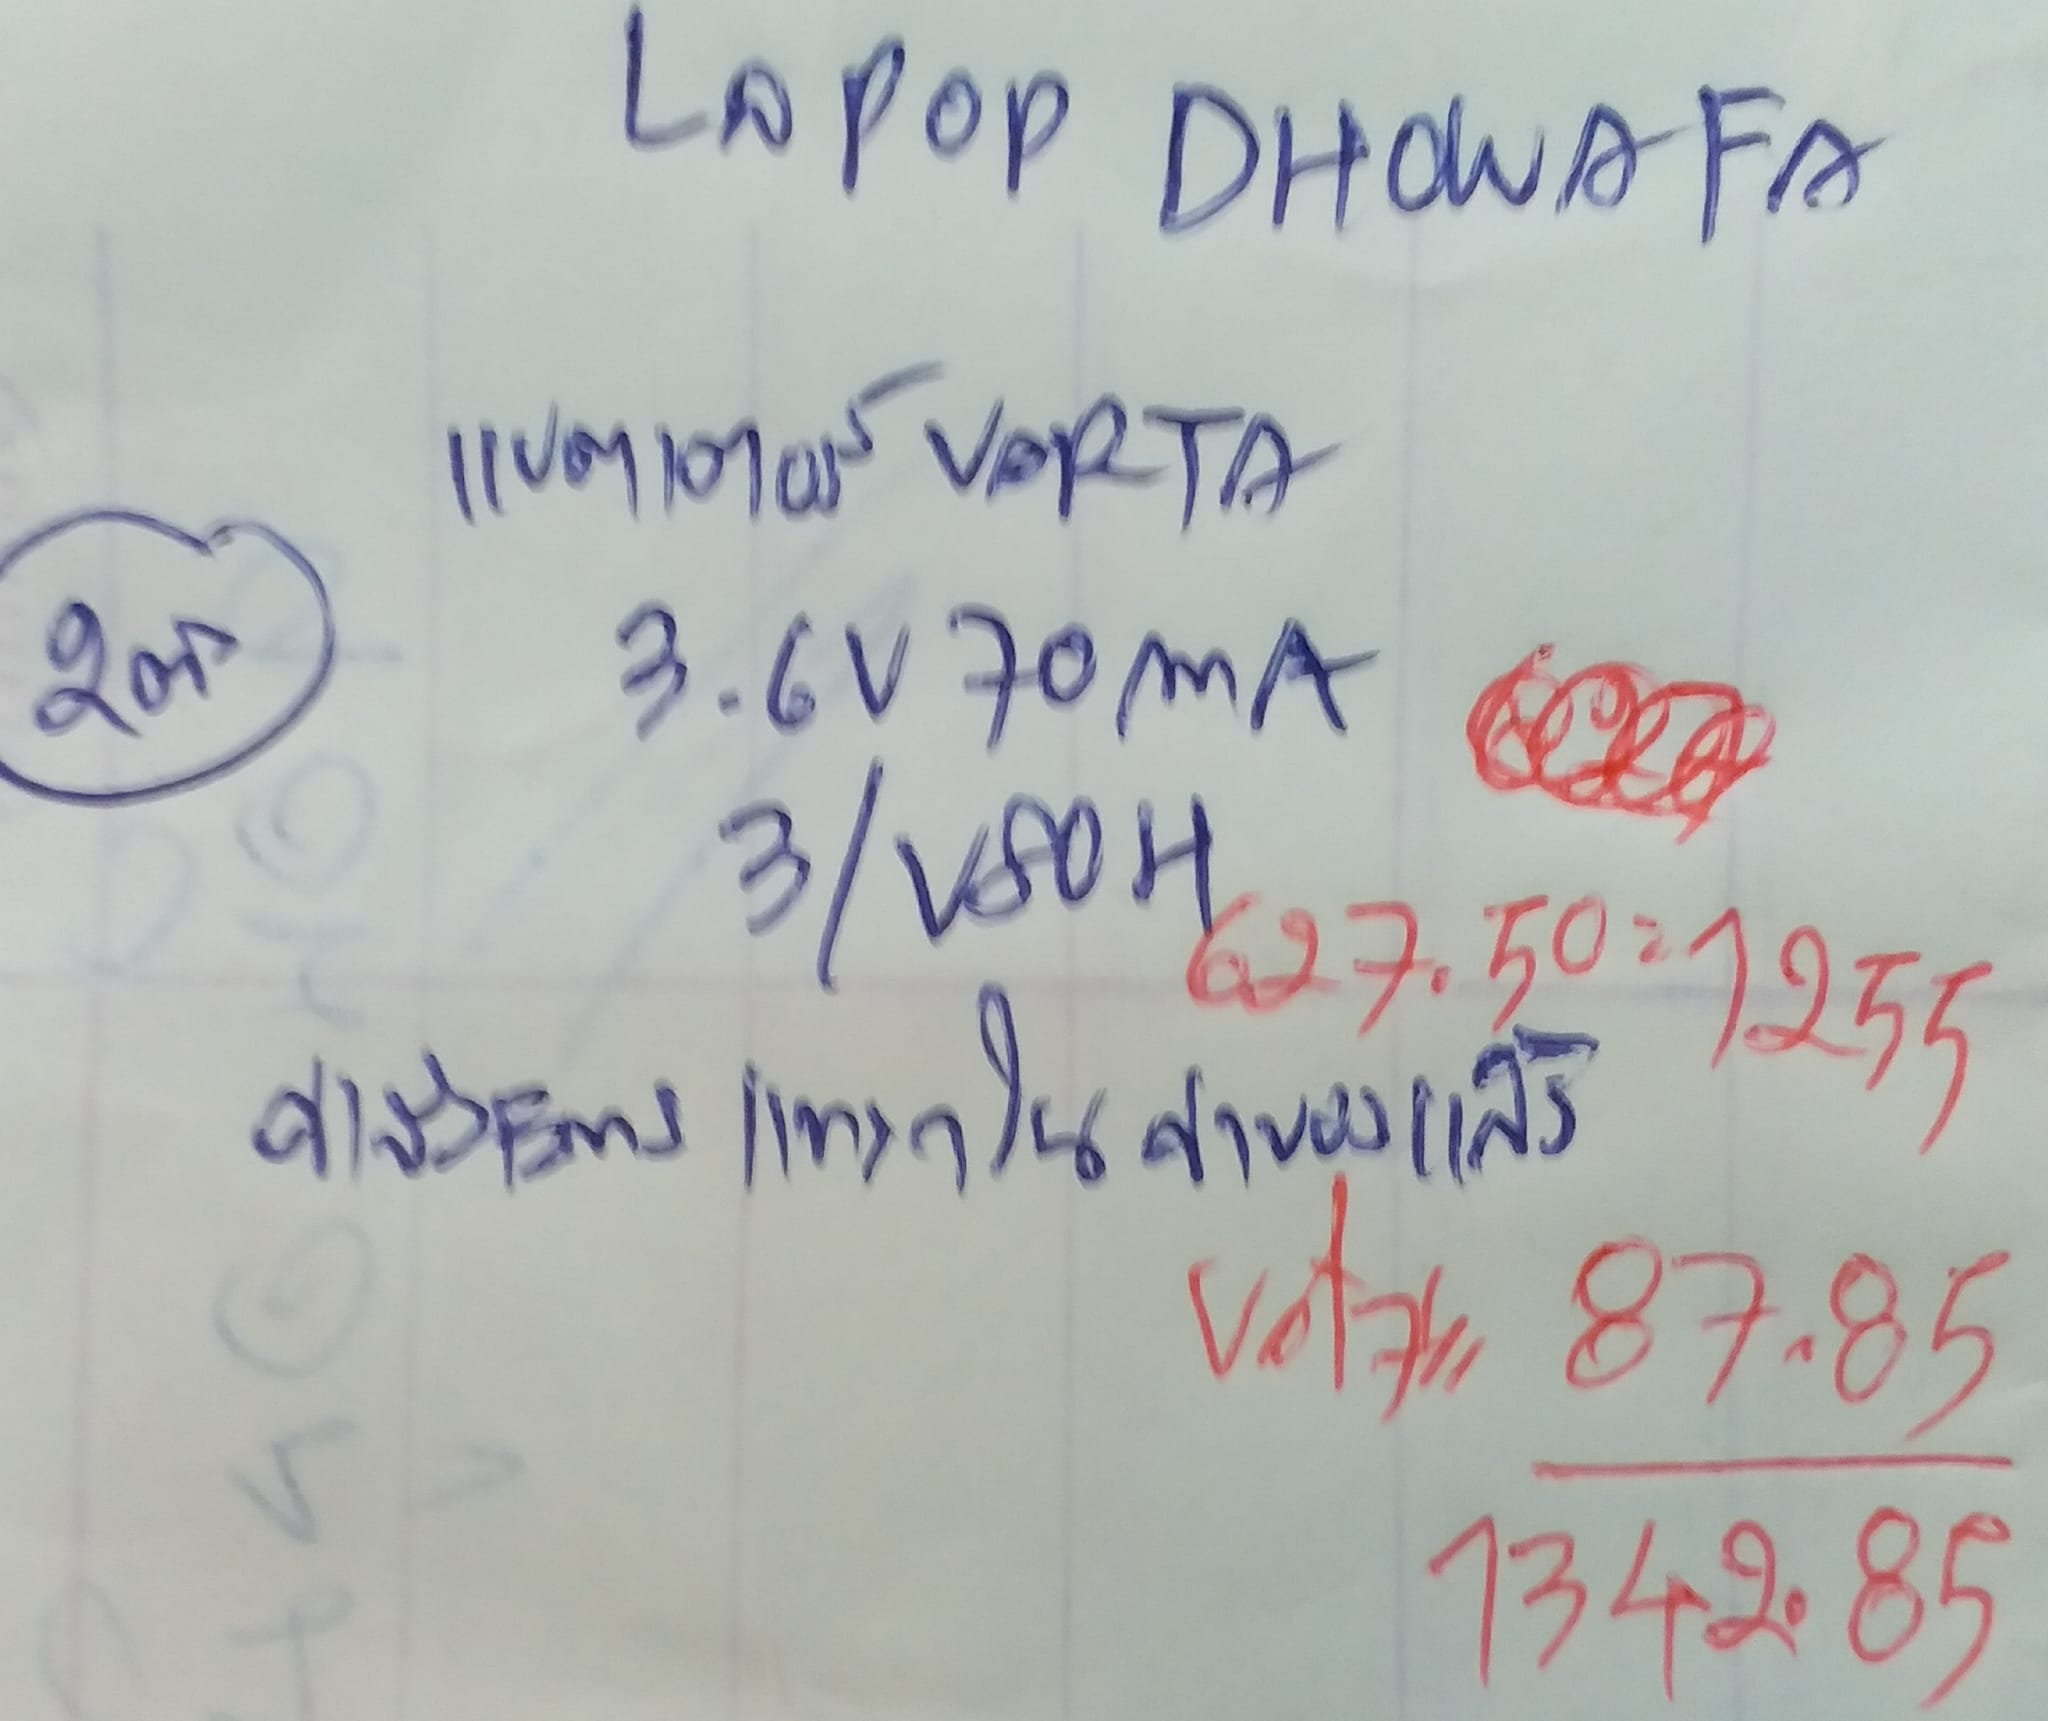 LAPOP DHOWAFA
แบตเตอรี่ VARTA
2 ตัว
3.6V 70mA
3/V80H
627.50=1255
ค่าส่งEms แทรกในค่าของแล้ว
Vat 7% 87.85
1342.85